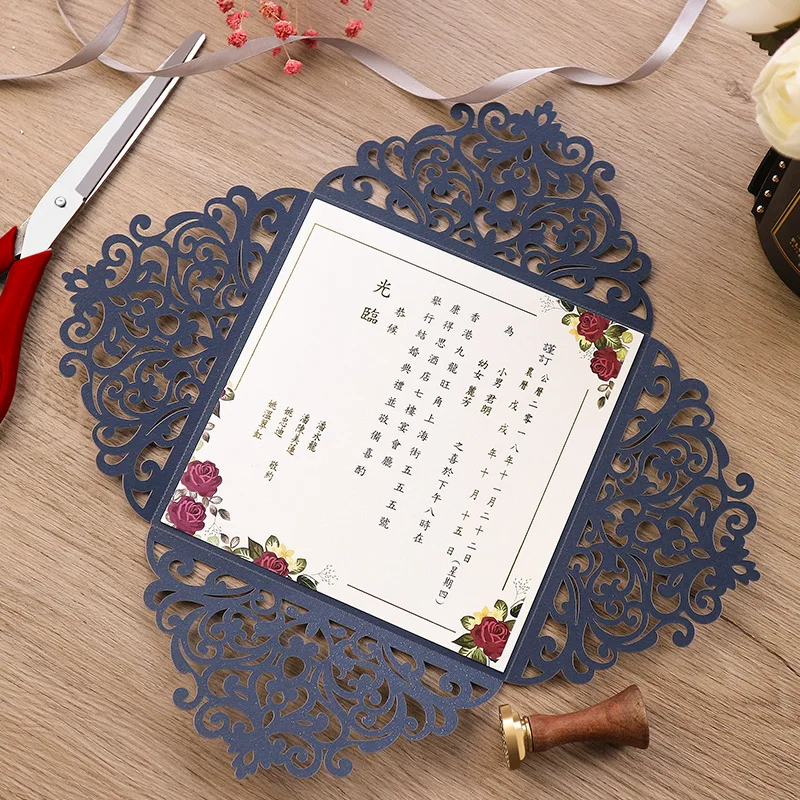 謹訂
公曆二零一八年十一月二十二日
農曆戊戌年十月十五日(星期四)
為
小男君明
幼女麗芳
之喜於下午八時在
香港九龍旺角上海街五五五號
康得思酒店七樓宴會廳
舉行結婚典禮並敬備喜酌
恭候
光臨
潘永龍
潘陳美蓮
姚忠迪
姚溫翠虹
敬約